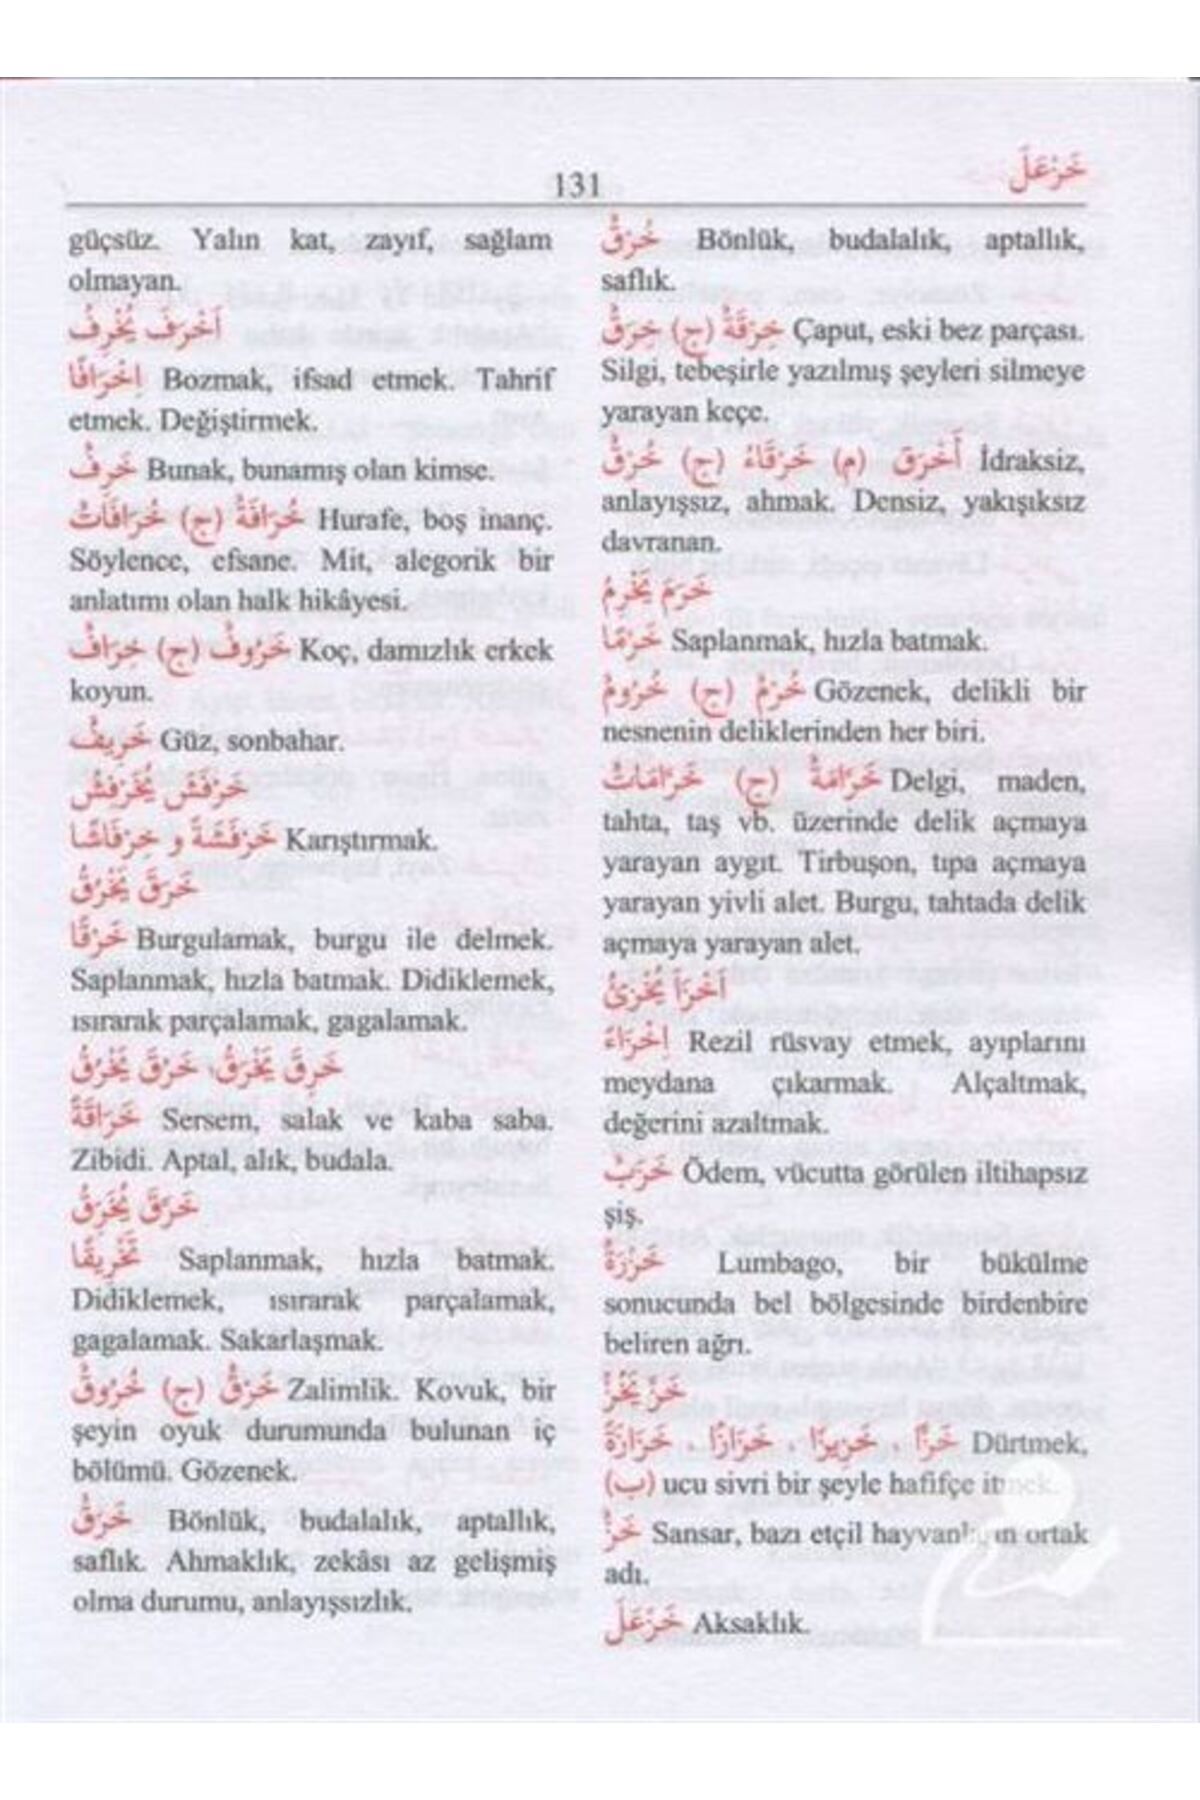 131
خَزْعَلٌ
güçsüz. Yalın kat, zayıf, sağlam
olmayan.
أَخْرَفَ يُخْرِفُ
إِخْرَافًا Bozmak, ifsad etmek. Tahrif
etmek. Değiştirmek.
خَرِفٌ Bunak, bunamış olan kimse.
خُرَافَةٌ (ج) خُرَافَاتٌ Hurafe, boş inanç.
Söylence, efsane. Mit, alegorik bir
anlatımı olan halk hikâyesi.
خَرُوفٌ (ج) خِرَافٌ Koç, damızlık erkek
koyun.
خَرِيفٌ Güz, sonbahar.
خَرْفَشَ يُخَرْفِشُ
خَرْفَشَةً و خِرْفَاشًا Karıştırmak.
خَرَقَ يَخْرُقُ
خَرْقًا Burgulamak, burgu ile delmek.
Saplanmak, hızla batmak. Didiklemek,
ısırarak parçalamak, gagalamak.
خَرِقَ يَخْرَقُ، خَرُقَ يَخْرُقُ
خَرَاقَةً Sersem, salak ve kaba saba.
Zibidi. Aptal, alık, budala.
خَرَّقَ يُخَرِّقُ
تَخْرِيقًا Saplanmak, hızla batmak.
Didiklemek, ısırarak parçalamak,
gagalamak. Sakarlaşmak.
خَرْقٌ (ج) خُرُوقٌ Zalimlik. Kovuk, bir
şeyin oyuk durumunda bulunan iç
bölümü. Gözenek.
خَرَقٌ Bönlük, budalalık, aptallık,
saflık. Ahmaklık, zekâsı az gelişmiş
olma durumu, anlayışsızlık.
خُرْقٌ Bönlük, budalalık, aptallık,
saflık.
خِرْقَةٌ (ج) خِرَقٌ Çaput, eski bez parçası.
Silgi, tebeşirle yazılmış şeyleri silmeye
yarayan keçe.
أَخْرَق (م) خَرْقَاءُ (ج) خُرْقٌ İdraksiz,
anlayışsız, ahmak. Densiz, yakışıksız
davranan.
خَرَمَ يَخْرِمُ
خَرْمًا Saplanmak, hızla batmak.
خُرْمٌ (ج) خُرُومٌ Gözenek, delikli bir
nesnenin deliklerinden her biri.
خَرَّامَةٌ (ج) خَرَّامَاتٌ Delgi, maden,
tahta, taş vb. üzerinde delik açmaya
yarayan aygıt. Tirbuşon, tıpa açmaya
yarayan yivli alet. Burgu, tahtada delik
açmaya yarayan alet.
أَخْزَأَ يُخْزِئُ
إِخْزَاءً Rezil rüsvay etmek, ayıplarını
meydana çıkarmak. Alçaltmak,
değerini azaltmak.
خَزَبٌ Ödem, vücutta görülen iltihapsız
şiş.
خُزْرَةٌ Lumbago, bir bükülme
sonucunda bel bölgesinde birdenbire
beliren ağrı.
خَزَّ يَخُزُّ
خَزًّا ، خَزِيزًا ، خَزَازًا ، خَزَازَةً Dürtmek,
(ب) ucu sivri bir şeyle hafifçe itmek.
خَزٌّ Sansar, bazı etçil hayvanların ortak
adı.
خَزْعَلَ Aksaklık.